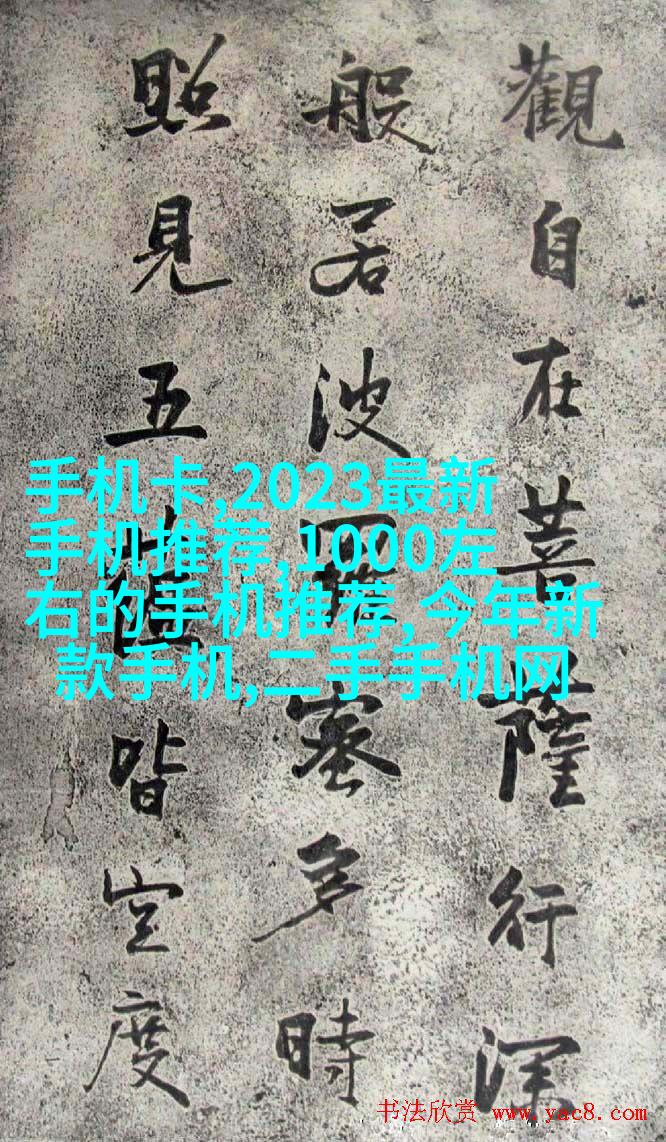 觀自在菩薩行深
般若波羅蜜多時
照見五蘊皆空度
手机卡,2023最新
手机推荐,1000左
右的手机推荐,今年新
款手机,二手手机网
书法欣赏 www.yac8.com